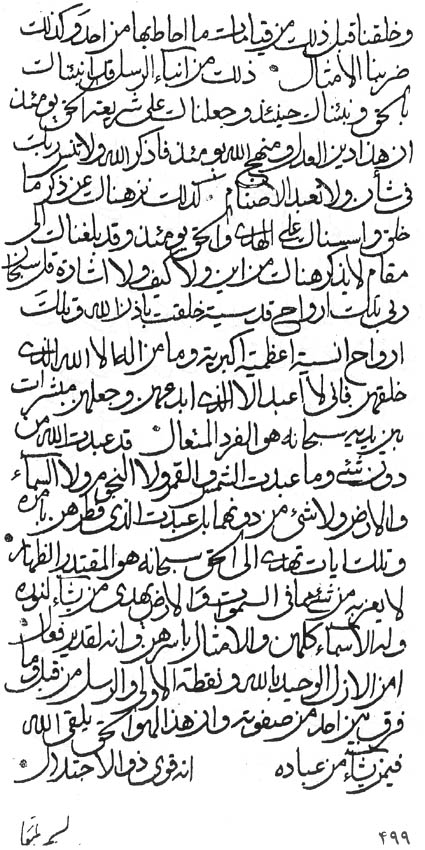 وخلقنا قبل ذلك من قيامات ما احاط بها من احد وكذلك
ضربنا الامثال ذلك من انباء الرسل قد انبئناك
بالحق ونبئناك حينئذ وجعلناك على شريعة الحق يومئذ
ان هذا دين العدل ومنهج الله يومئذ فاذكر الله ولا تنس ربك
في شأن ولا تعبد الاصنام كذلك نزهناك عن ذكر ما
خلق واسسناك على الهدى والحق يومئذ وقد بلغناك الى
مقام لا يذكر هناك من اين ولا كيف ولا اشارة قل سبحان
ربي تلك ارواح قدسية خلقت باذن الله وتلك
ارواح انسية اعظمية اكبرية وما من اله الا الله الذي
خلقهن فاني لا اعبد الا الذي ابدعهن وجعلهن مبشرات
بين يديه سبحانه هو الفرد المتعال قد عبدت الله من
دون شئ وما عبدت الشمس والقمر ولا النجوم ولا السماء
والارض ولا شئ من دونهما بل عبدت الذي فطرهن بامره
وتلك ايات تهدي الى الحق سبحانه هو المقتدر الظهار
لا يعزب من شئ عما في السموات والارض يهدي من يشاء لنوره
وله الاسماء كلهن والامثال باسرهن وانه لقدير فعال
امن الازل الوحيد بالله ونقطة الاولى والرسل من قبل وما
فرق بين احد من صفوته وان هذا لهو الحق يلقي الله
فيمن يشاء من عباده انه قوي ذو الاجتدال
۴۹۹